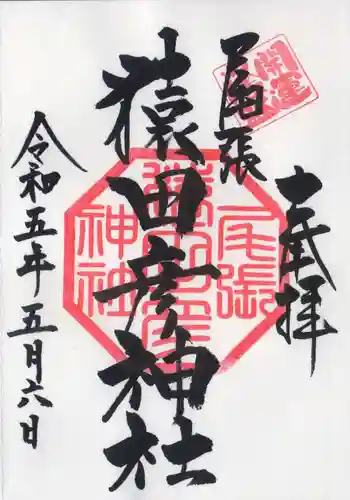 奉拝
尾張
猿田彦神社
令和五年五月六日
開運
尾張
猿田彦
神社